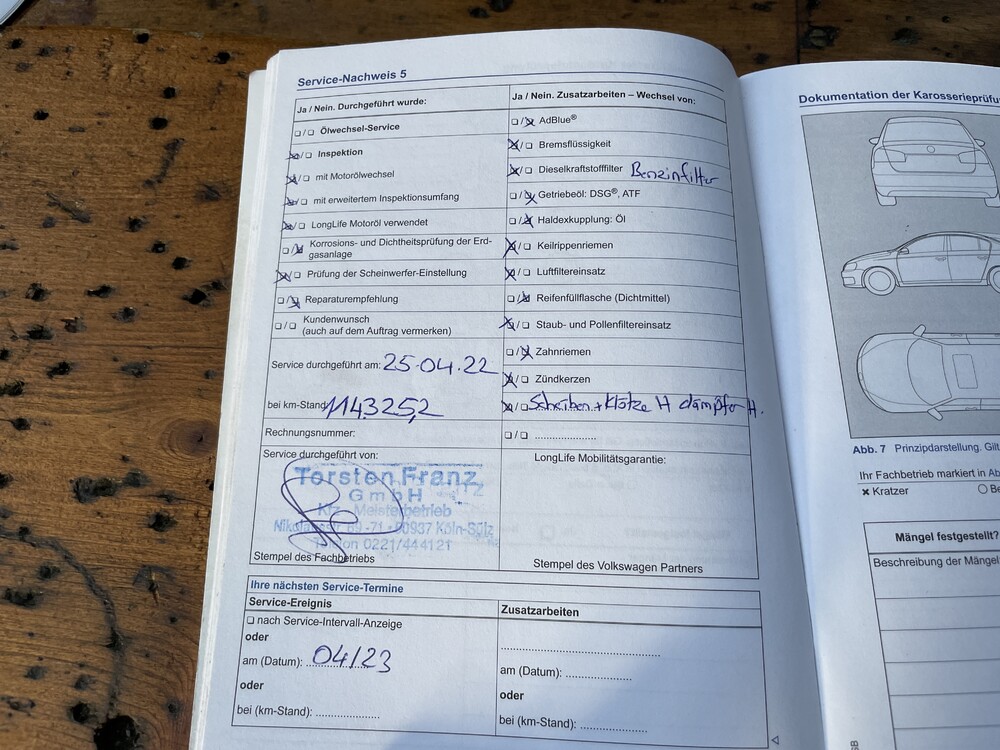 Service-Nachweis 5
Ja / Nein. Durchgeführt wurde:
Ölwechsel-Service
Inspektion
mit Motorölwechsel
mit erweitertem Inspektionsumfang
LongLife Motoröl verwendet
Korrosions- und Dichtheitsprüfung der Erd-
gasanlage
Prüfung der Scheinwerfer-Einstellung
Reparaturempfehlung
Kundenwunsch
(auch auf dem Auftrag vermerken)
Service durchgeführt am: 25.04.22
bei km-Stand
Rechnungsnummer:
Service durchgeführt von:
Torsten Franz
GmbH
Kfz - Meisterbetrieb
Nikolausstr. 69-71 • 50937 Köln-Sülz
Telefon 0221/444121
Stempel des Fachbetriebs
Ja / Nein. Zusatzarbeiten – Wechsel von:
AdBlue®
Bremsflüssigkeit
Dieselkraftstofffilter Benzinfilter
Getriebeöl: DSG®, ATF
Haldexkupplung: Öl
Keilrippenriemen
Luftfiltereinsatz
Reifenfüllflasche (Dichtmittel)
Staub- und Pollenfiltereinsatz
Zahnriemen
Zündkerzen
Scheiben + Klötze H dämpfer H.
LongLife Mobilitätsgarantie:
Stempel des Volkswagen Partners
Ihre nächsten Service-Termine
Service-Ereignis
nach Service-Intervall-Anzeige
oder
am (Datum): 04/23
oder
bei (km-Stand):
Zusatzarbeiten
am (Datum):
oder
bei (km-Stand):
Dokumentation der Karosserieprüfu
Abb. 7 Prinzipdarstellung. Gilt
Ihr Fachbetrieb markiert in Ab
Kratzer
Be
Mängel festgestellt?
Beschreibung der Mängel